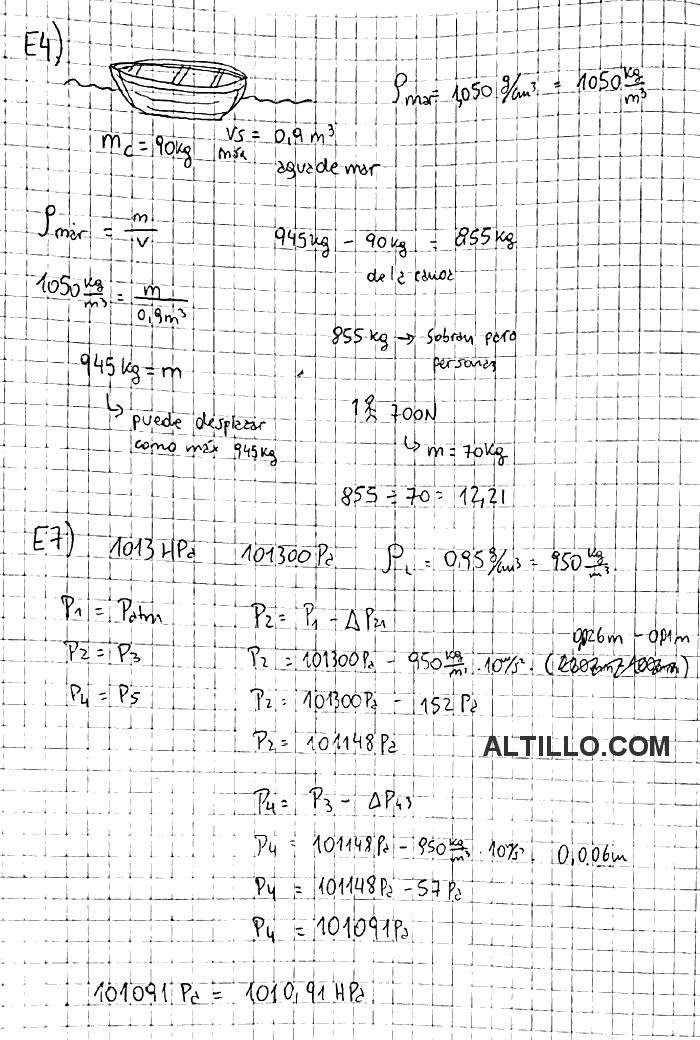 E4)
ρmar = 1,050 g/cm³ = 1050 kg/m³
mc = 90kg Vs = 0,9 m³
máx agua de mar
ρmar = m/V
945kg - 90kg = 855kg
de la canoa
1050 kg/m³ = m/0,9m³
855 kg → sobran para
personas
945 kg = m
↳ puede desplazar
como máx 945kg
1 700N
↳ m = 70kg
855 ÷ 70 = 12,21
E7) 1013 HPa 101300 Pa ρL = 0,95 g/cm³ = 950 kg/m³.
P1 = Patm
P2 = P3
P4 = P5
P2 = P1 - ΔP21
0,026m - 0,01m
P2 = 101300Pa - 950 kg/m³ . 10 m/s² . ( )
P2 = 101300Pa - 152 Pa
P2 = 101148Pa
ALTILLO.COM
P4 = P3 - ΔP43
P4 = 101148Pa - 950 kg/m³ . 10 m/s² . 0,006m
P4 = 101148Pa - 57Pa
P4 = 101091Pa
101091 Pa = 1010,91 HPa